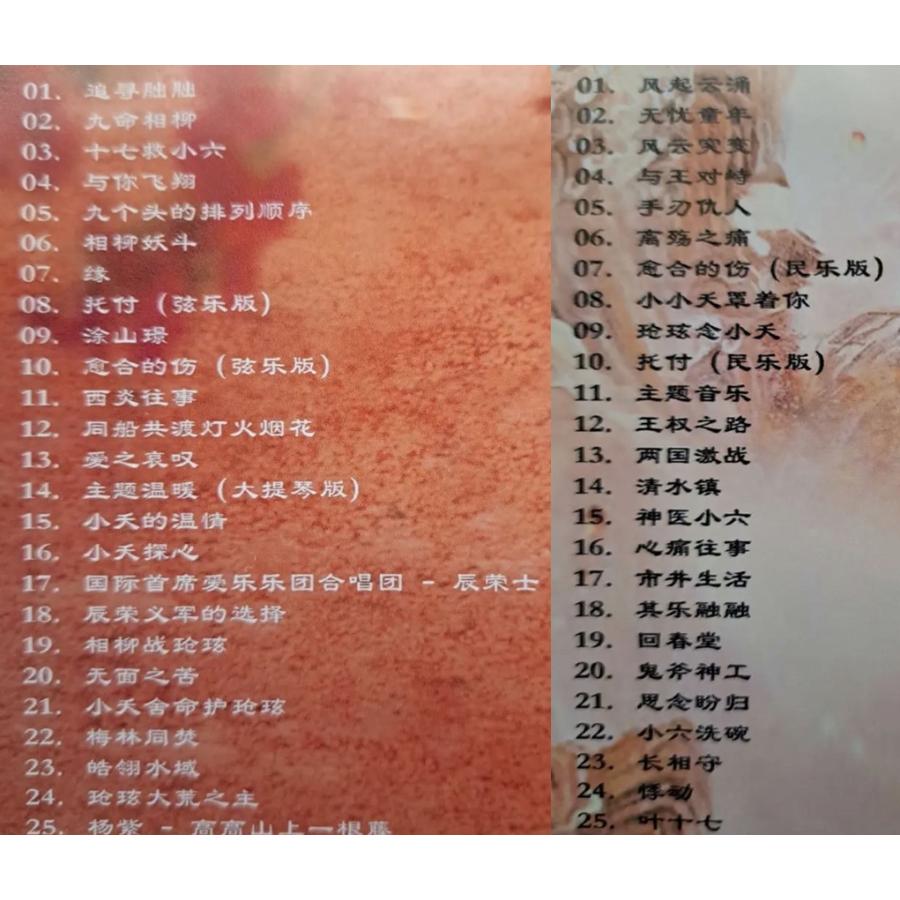 01. 追寻朏朏
02. 九命相柳
03. 十七救小六
04. 与你飞翔
05. 九个头的排列顺序
06. 相柳妖斗
07. 缘
08. 托付（弦乐版）
09. 涂山璟
10. 愈合的伤（弦乐版）
11. 西炎往事
12. 同船共渡灯火烟花
13. 爱之哀叹
14. 主题温暖（大提琴版）
15. 小夭的温情
16. 小夭探心
17. 国际首席爱乐乐团合唱团 - 辰荣士
18. 辰荣义军的选择
19. 相柳战玱玹
20. 无面之苦
21. 小夭舍命护玱玹
22. 梅林同焚
23. 皓翎水域
24. 玱玹大荒之主
25. 杨紫 - 高高山上一根藤
01. 风起云涌
02. 无忧童年
03. 风云突变
04. 与王对峙
05. 手刃仇人
06. 离殇之痛
07. 愈合的伤（民乐版）
08. 小小夭罩着你
09. 玱玹念小夭
10. 托付（民乐版）
11. 主题音乐
12. 王权之路
13. 两国激战
14. 清水镇
15. 神医小六
16. 心痛往事
17. 市井生活
18. 其乐融融
19. 回春堂
20. 鬼斧神工
21. 思念盼归
22. 小六洗碗
23. 长相守
24. 悸动
25. 叶十七